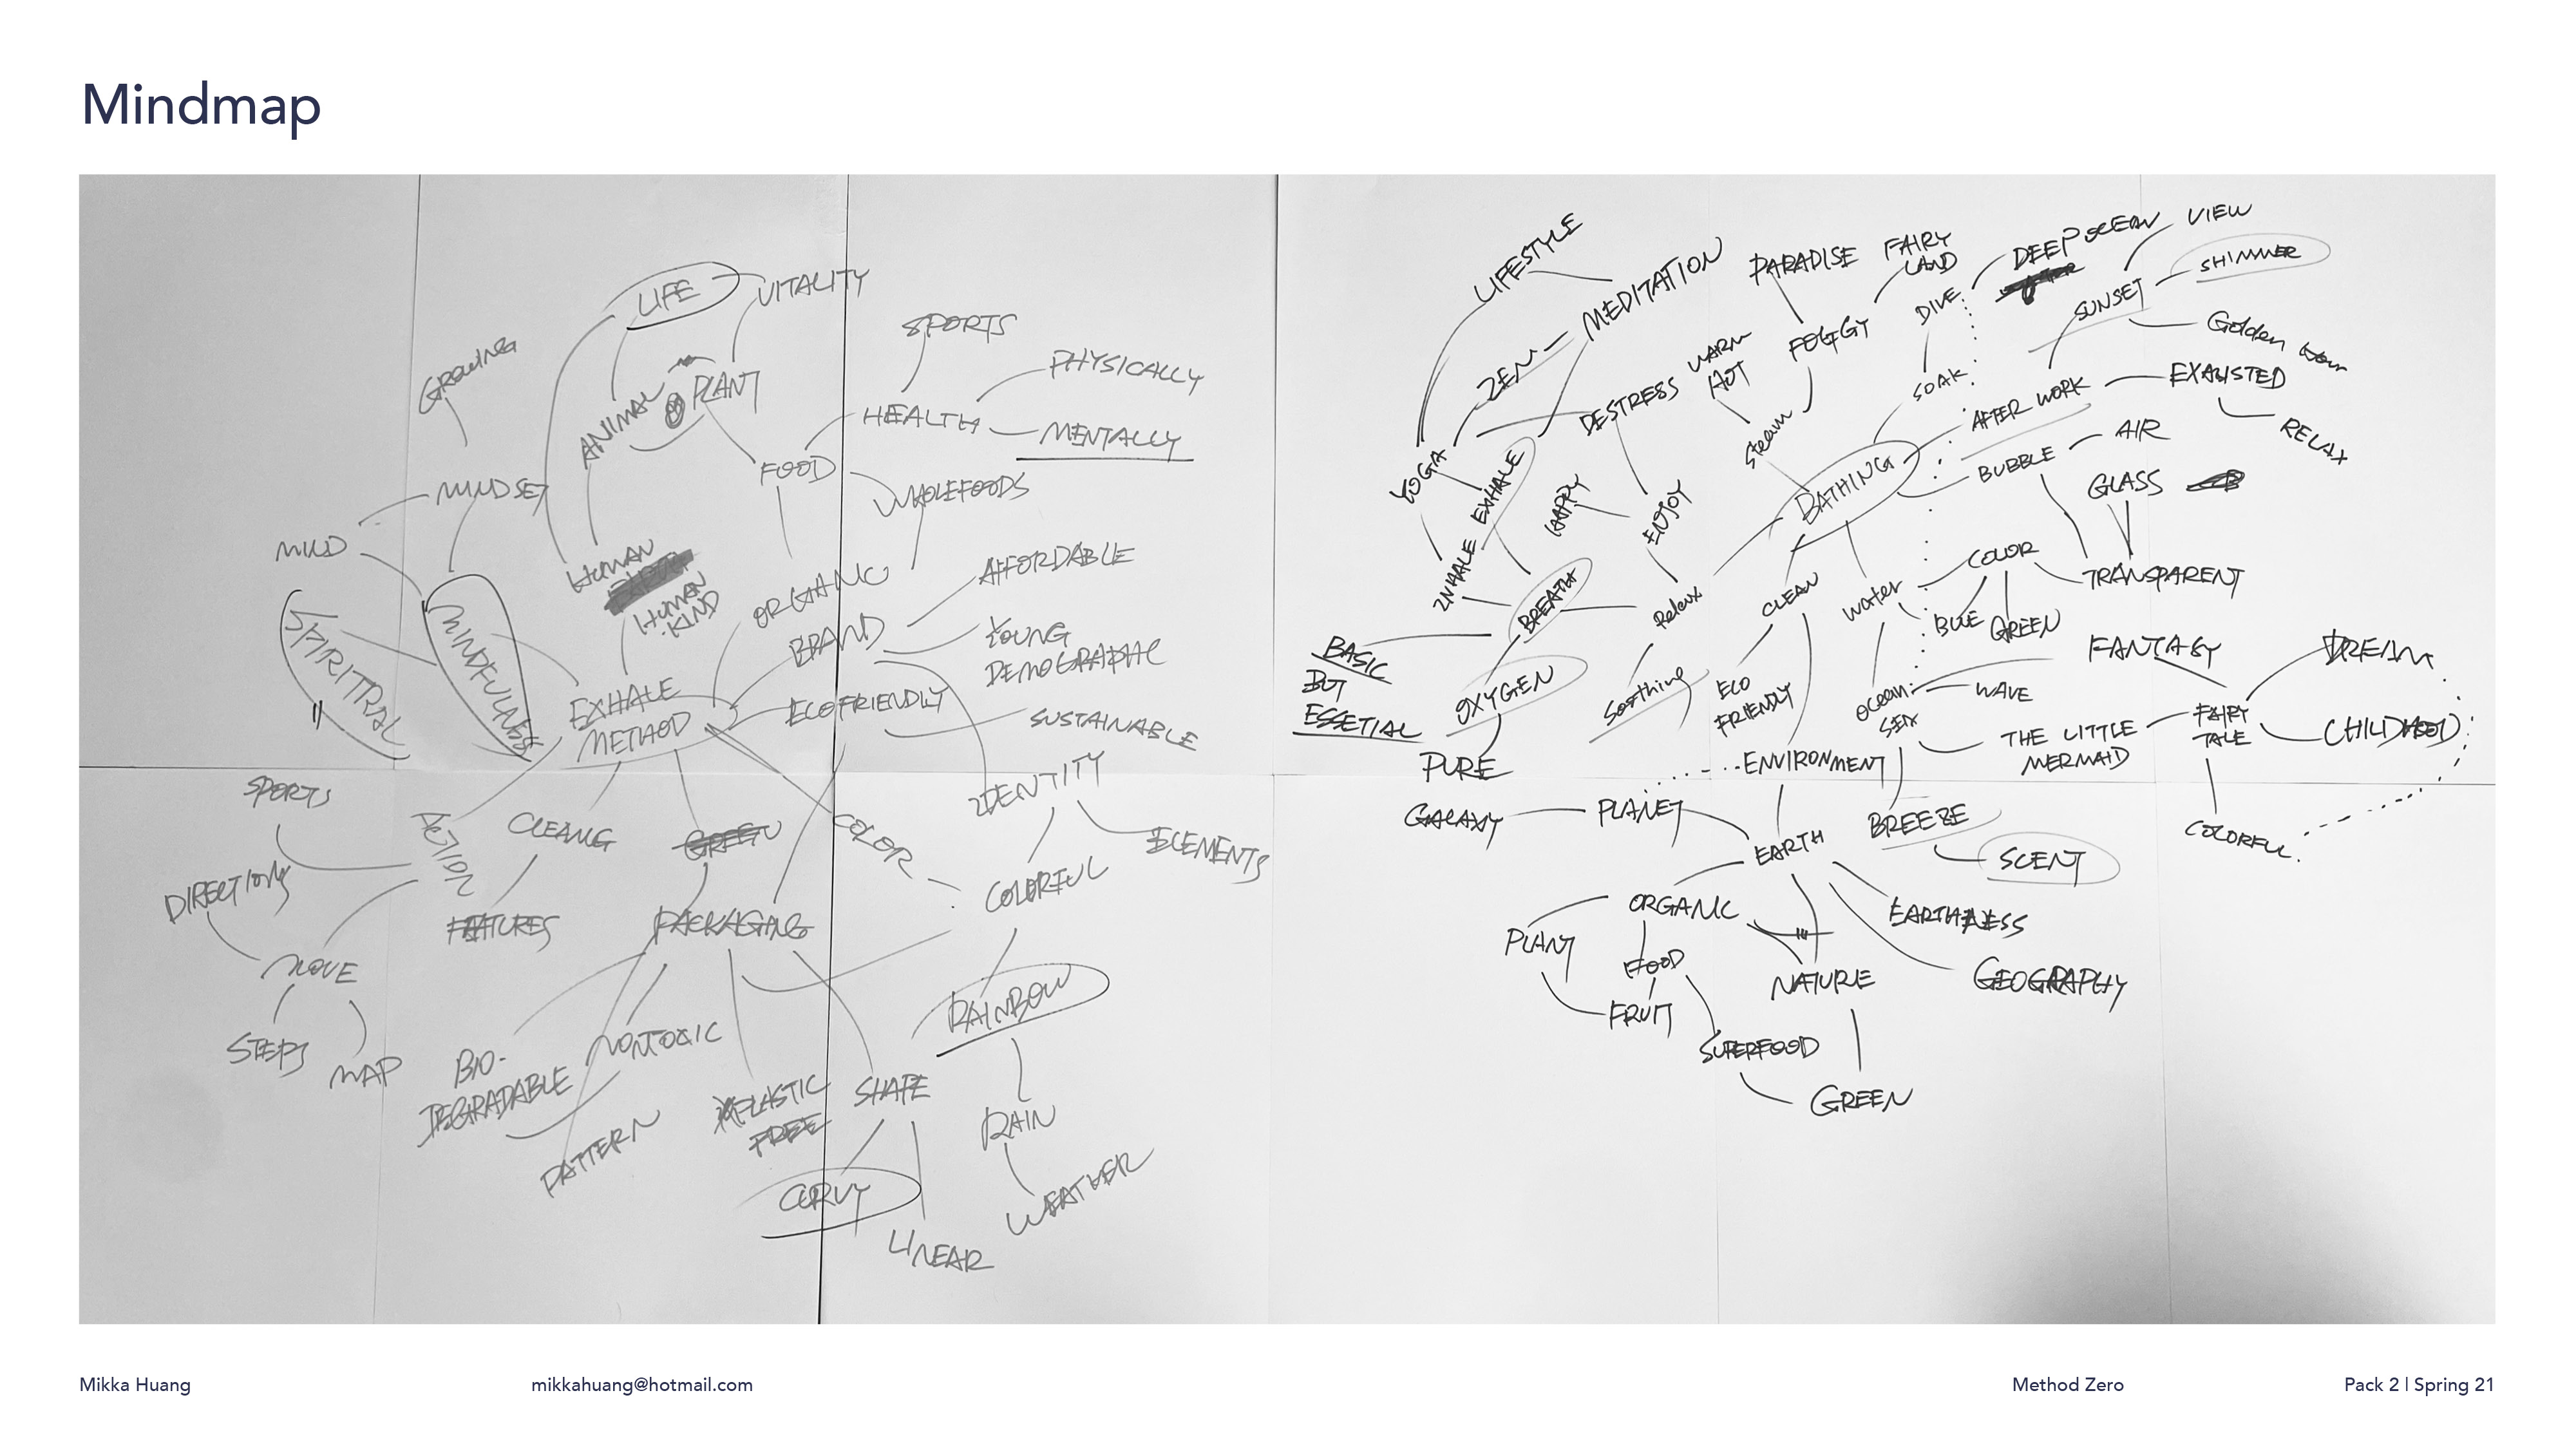 Mindmap
LIFE
VITALITY
SPORTS
GROWING
ANIMAL
PLANT
PHYSICALLY
HEALTH
MENTALLY
FOOD
MINDSET
WHOLEFOODS
MILD
HUMAN
HUMAN
KIND
ORGANIC
AFFORDABLE
BRAND
YOUNG
DEMOGRAPHIC
SPIRITRAL
MINDFULNESS
EXHALE
METHOD
ECOFRIENDLY
SUSTAINABLE
SPORTS
ACTION
CLEANG
GREEN
COLOR
IDENTITY
ELEMENTS
DIRECTIONS
FEATURES
PACKAGING
COLORFUL
MOVE
RAINBOW
STEPS
MAP
BIO-
DEGRADABLE
NONTOXIC
PLASTIC
FREE
SHAPE
PATTERN
RAIN
CURVY
WEATHER
LINEAR
LIFESTYLE
MEDITATION
PARADISE
FAIRY
LAND
DEEP OCEAN
VIEW
SHIMMER
DIVE
SUNSET
Golden Hour
ZEN
DESTRESS
WARM
HOT
FOGGY
SOAK
AFTER WORK
EXAUSTED
RELAX
YOGA
EXHALE
HAPPY
ENJOY
Steam
BATHING
BUBBLE
AIR
GLASS
INHALE
BREATH
Relax
CLEAN
Water
COLOR
TRANSPARENT
BLUE
GREEN
BASIC
BUT
ESSETIAL
OXYGEN
PURE
Soothing
ECO
FRIENDLY
OCEAN
SEA
WAVE
FANTASY
DREAM
THE LITTLE
MERMAID
FAIRY
TALE
CHILDHOOD
ENVIRONMENT
GALAXY
PLANET
EARTH
BREEZE
SCENT
COLORFUL
ORGANIC
EARTHINESS
PLANT
FOOD
FRUIT
NATURE
GEOGRAPHY
SUPERFOOD
GREEN
Mikka Huang
mikkahuang@hotmail.com
Method Zero
Pack 2 | Spring 21